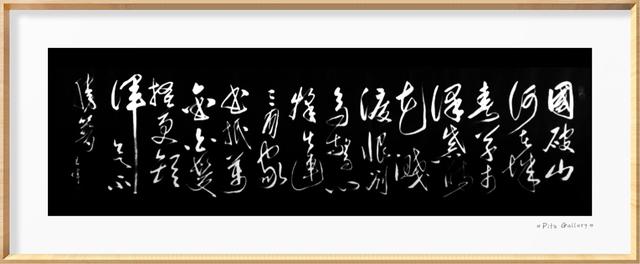 國破山
河在城
春草木
深感時
花濺
淚恨別
鳥驚心
烽火連
三月家
書抵萬
金白
搔更短
渾欲不
勝簪
Pita Gallery